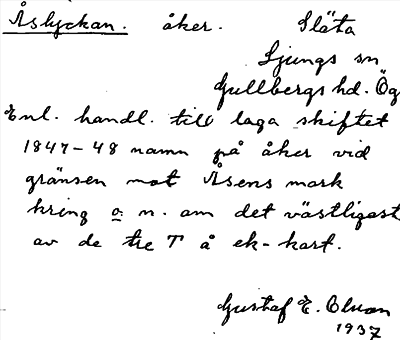 Åslyckan. åker. Släta
Ljungs sn
Gullbergs hd. Ög
Enl. handl. till laga skiftet
1847-48 namn på åker vid
gränsen mot Åsens mark
kring o. n. om det västligast
av de tre T å ek-kart.
Gustaf E. Olsson
1937